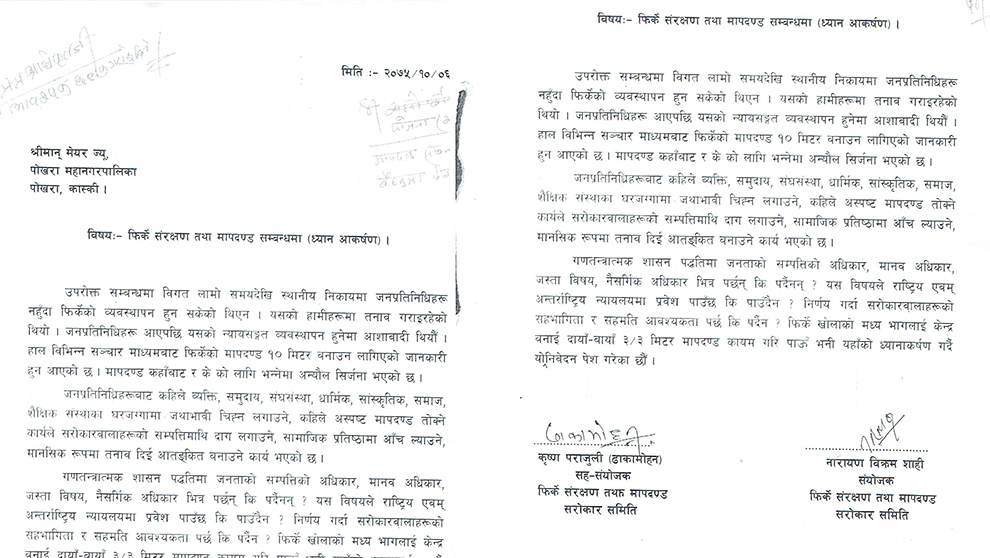 मिति :- २०७५/१०/०६
श्रीमान् मेयर ज्यू,
पोखरा महानगरपालिका
पोखरा, कास्की ।
विषयः- फिर्के संरक्षण तथा मापदण्ड सम्बन्धमा (ध्यान आकर्षण) ।
उपरोक्त सम्बन्धमा विगत लामो समयदेखि स्थानीय निकायमा जनप्रतिनिधिहरू
नहुँदा फिर्केको व्यवस्थापन हुन सकेको थिएन । यसको हामीहरूमा तनाव गराइरहेको
थियो । जनप्रतिनिधिहरू आएपछि यसको न्यायसङ्गत व्यवस्थापन हुनेमा आशावादी थियौं ।
हाल विभिन्न सञ्चार माध्यमवाट फिर्केको मापदण्ड १० मिटर बनाउन लागिएको जानकारी
हुन आएको छ । मापदण्ड कहाँबाट र के को लागि भन्नेमा अन्यौल सिर्जना भएको छ ।
जनप्रतिनिधिहरूवाट कहिले व्यक्ति, समुदाय, संघसंस्था, धार्मिक, सांस्कृतिक, समाज,
शैक्षिक संस्थाका घरजग्गामा जथाभावी चिह्न लगाउने, कहिले अस्पष्ट मापदण्ड तोक्ने
कार्यले सरोकारवालाहरूको सम्पत्तिमाथि दाग लगाउने, सामाजिक प्रतिष्ठामा आँच ल्याउने,
मानसिक रूपमा तनाव दिई आतङ्कित बनाउने कार्य भएको छ ।
गणतन्त्रात्मक शासन पद्धतिमा जनताको सम्पत्तिको अधिकार, मानव अधिकार,
जस्ता विषय, नैसर्गिक अधिकार भित्र पर्छन् कि पर्दैनन् ? यस विषयले राष्ट्रिय एवम्
अन्तर्राष्ट्रिय न्यायलयमा प्रवेश पाउँछ कि पाउँदैन ? निर्णय गर्दा सरोकारवालाहरूको
सहभागिता र सहमति आवश्यकता पर्छ कि पर्दैन ? फिर्के खोलाको मध्य भागलाई केन्द्र
बनाई दायाँ-बायाँ ३/३ मिटर मापदण्ड कायम गरि पाऊँ भनी यहाँको ध्यानाकर्षण गर्दै
विषयः- फिर्के संरक्षण तथा मापदण्ड सम्बन्धमा (ध्यान आकर्षण) ।
उपरोक्त सम्बन्धमा विगत लामो समयदेखि स्थानीय निकायमा जनप्रतिनिधिहरू
नहुँदा फिर्केको व्यवस्थापन हुन सकेको थिएन । यसको हामीहरूमा तनाव गराइरहेको
थियो । जनप्रतिनिधिहरू आएपछि यसको न्यायसङ्गत व्यवस्थापन हुनेमा आशावादी थियौं ।
हाल विभिन्न सञ्चार माध्यमवाट फिर्केको मापदण्ड १० मिटर बनाउन लागिएको जानकारी
हुन आएको छ । मापदण्ड कहाँबाट र के को लागि भन्नेमा अन्यौल सिर्जना भएको छ ।
जनप्रतिनिधिहरूवाट कहिले व्यक्ति, समुदाय, संघसंस्था, धार्मिक, सांस्कृतिक, समाज,
शैक्षिक संस्थाका घरजग्गामा जथाभावी चिह्न लगाउने, कहिले अस्पष्ट मापदण्ड तोक्ने
कार्यले सरोकारवालाहरूको सम्पत्तिमाथि दाग लगाउने, सामाजिक प्रतिष्ठामा आँच ल्याउने,
मानसिक रूपमा तनाव दिई आतङ्कित बनाउने कार्य भएको छ ।
गणतन्त्रात्मक शासन पद्धतिमा जनताको सम्पत्तिको अधिकार, मानव अधिकार,
जस्ता विषय, नैसर्गिक अधिकार भित्र पर्छन् कि पर्दैनन् ? यस विषयले राष्ट्रिय एवम्
अन्तर्राष्ट्रिय न्यायलयमा प्रवेश पाउँछ कि पाउँदैन ? निर्णय गर्दा सरोकारवालाहरूको
सहभागिता र सहमति आवश्यकता पर्छ कि पर्दैन ? फिर्के खोलाको मध्य भागलाई केन्द्र
बनाई दायाँ-बायाँ ३/३ मिटर मापदण्ड कायम गरि पाऊँ भनी यहाँको ध्यानाकर्षण गर्दै
यो निवेदन पेश गरेका छौं ।
कृष्ण पराजुली (ढाकामोहन)
सह-संयोजक
फिर्के संरक्षण तथा मापदण्ड
सरोकार समिति
नारायण विक्रम शाही
संयोजक
फिर्के संरक्षण तथा मापदण्ड
सरोकार समिति